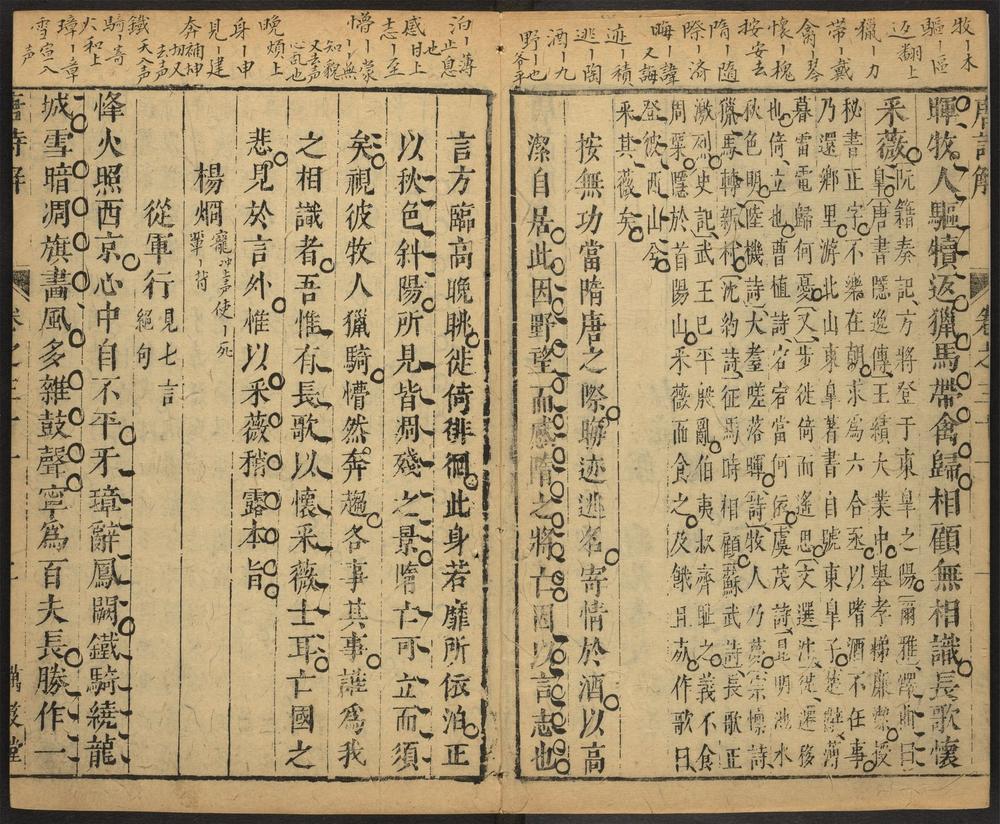 牧ー木
驅ー區
返ー翻上
獵ー力
帶ー戴
禽ー琴
懷ー槐
按ー安去
隋ー隨
際ー済
晦ー諱又誨
迹ー積
逃ー陶
酒ー九
野ー也
唐詩解
卷之三十
暉牧人驅犢返獵馬帶禽歸相顧無相識長歌懷
采薇
阮籍奏記方將登于東皐之陽爾雅釋曲日
皐唐書隱逸傳王績大業中舉孝悌廉潔授
秘書正字不樂在朝求為六合丞以嗜酒不在事
乃還鄉里游北山東皐著書自號東皐子
暮雷電歸何憂又步徙倚而遙思文選
也倚立也曹植詩宕宕當何依虞茂詩昆明池水
秋色明陸機詩大耋嗟落暉詩牧人乃夢宗懍詩
獵馬轉新村沈約詩征馬時相顧蘇武詩長歌正
激烈史記武王已平殷亂伯夷叔齊恥之義不食
周粟隱於首陽山采薇而食之及餓且死作歌曰
登彼西山兮
采其薇矣
按無功當隋唐之際晦迹逃名寄情於酒以高
潔自居此因野望而感隋之將亡因以言志也
泊ー薄止息也
感ー甘上
志ー至
懵ー蒙無知貌又去声心乱也
晚ー煩上
身ー申
見ー建
奔ー補坤切又去声
鐵ー天入声
騎ー寄
火ー和上
璋ー章
雪ー宣入声
言方臨高晚眺徙倚徘徊此身若靡所依泊正
以秋色斜陽所見皆凋殘之景隋亡可立而須
矣視彼牧人獵騎懵然奔趨各事其事誰為我
之相識者吾惟有長歌以懷采薇士耳亡國之
悲見於言外惟以采薇稍露本旨
楊烱
從軍行
見七言絕句
烽火照西京心中自不平牙璋辭鳳闕鐵騎繞龍
城雪暗凋旗畫風多雜鼓聲寧為百夫長勝作一
唐詩解
卷之三十
萬笈堂